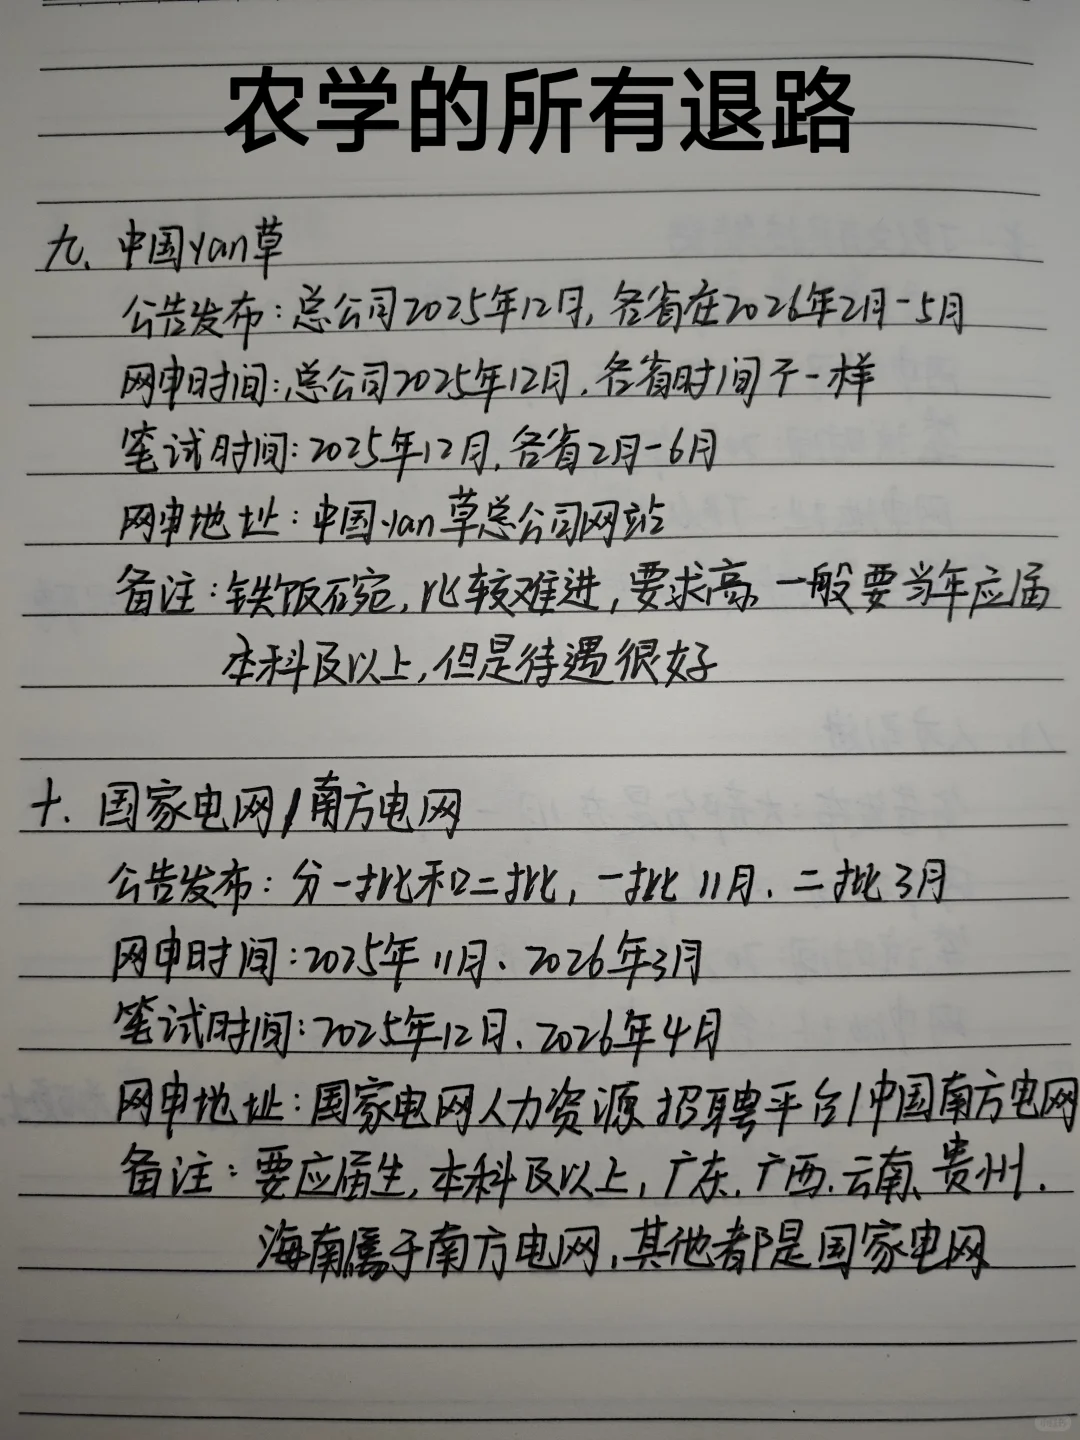 农学的所有退路
九、中国yan草
公告发布：总公司2025年12月，各省在2026年2月-5月
网申时间：总公司2025年12月，各省时间不一样
笔试时间：2025年12月，各省2月-6月
网申地址：中国yan草总公司网站
备注：铁饭碗，比较难进，要求高，一般要当年应届
本科及以上，但是待遇很好
十、国家电网/南方电网
公告发布：分一批和二批，一批11月、二批3月
网申时间：2025年11月、2026年3月
笔试时间：2025年12月、2026年4月
网申地址：国家电网人力资源招聘平台/中国南方电网
备注：要应届生，本科及以上，广东、广西、云南、贵州、
海南属于南方电网，其他都是国家电网